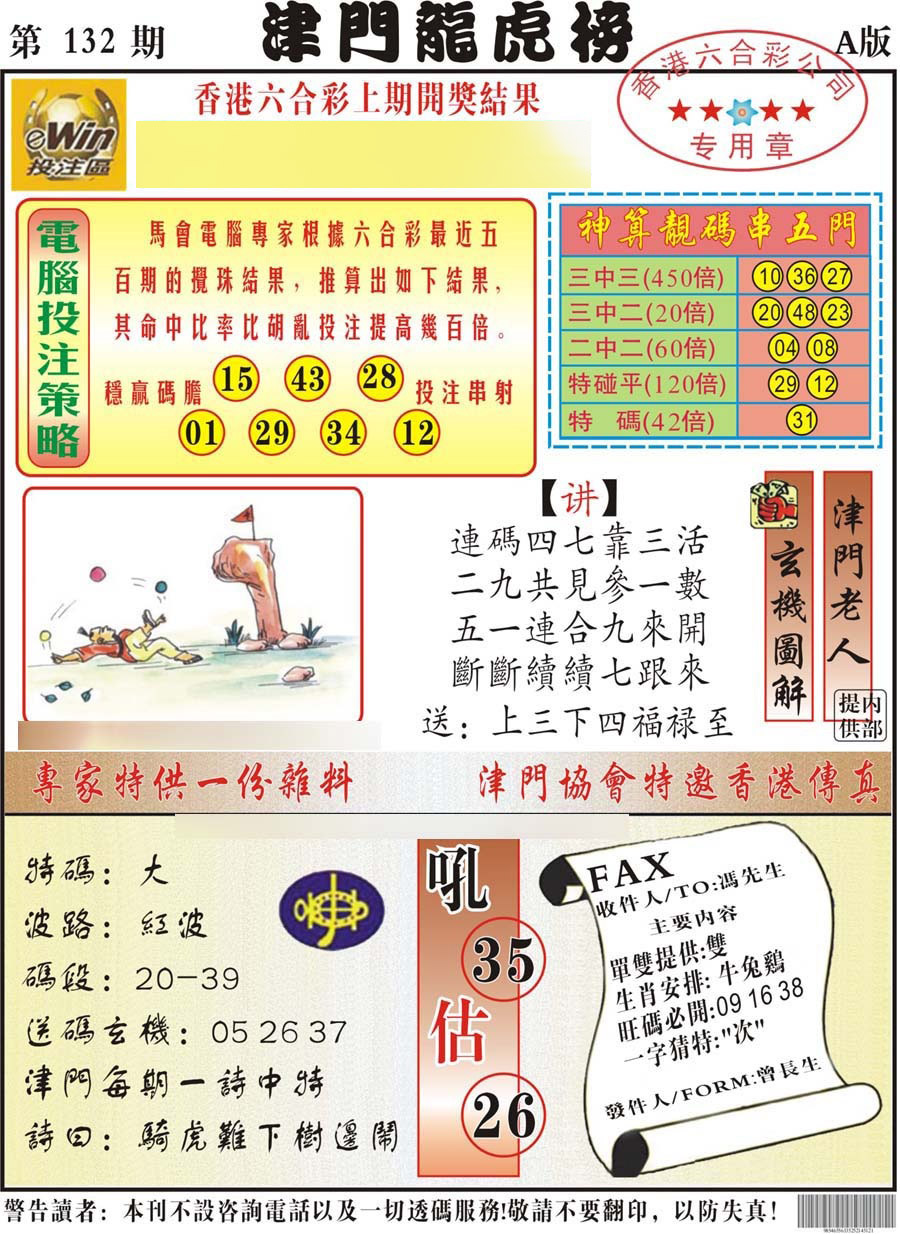 第 132 期
津門龍虎榜
A版
香港六合彩公司
专用章
eWin
投注區
香港六合彩上期開獎結果
電腦投注策略
馬會電腦專家根據六合彩最近五
百期的攪珠結果，推算出如下結果，
其命中比率比胡亂投注提高幾百倍。
穩贏碼膽 15 43 28 投注串射
01 29 34 12
神算靚碼串五門
三中三(450倍) 10 36 27
三中二(20倍) 20 48 23
二中二(60倍) 04 08
特碰平(120倍) 29 12
特 碼(42倍) 31
【讲】
連碼四七靠三活
二九共見參一數
五一連合九來開
斷斷續續七跟來
送：上三下四福禄至
玄機圖解
津門老人
提供
内部
專家特供一份雜料
津門協會特邀香港傳真
特碼：大
波路：紅波
碼段：20-39
送碼玄機：05 26 37
津門每期一詩中特
詩曰：騎虎難下樹邊鬧
吼
35
估
26
FAX
收件人/TO:馮先生
主要内容
單雙提供:雙
生肖安排: 牛兔鷄
旺碼必開:09 16 38
一字猜特:"次"
發件人/FORM:曾長生
警告讀者：本刊不設咨詢電話以及一切透碼服務!敬請不要翻印，以防失真！